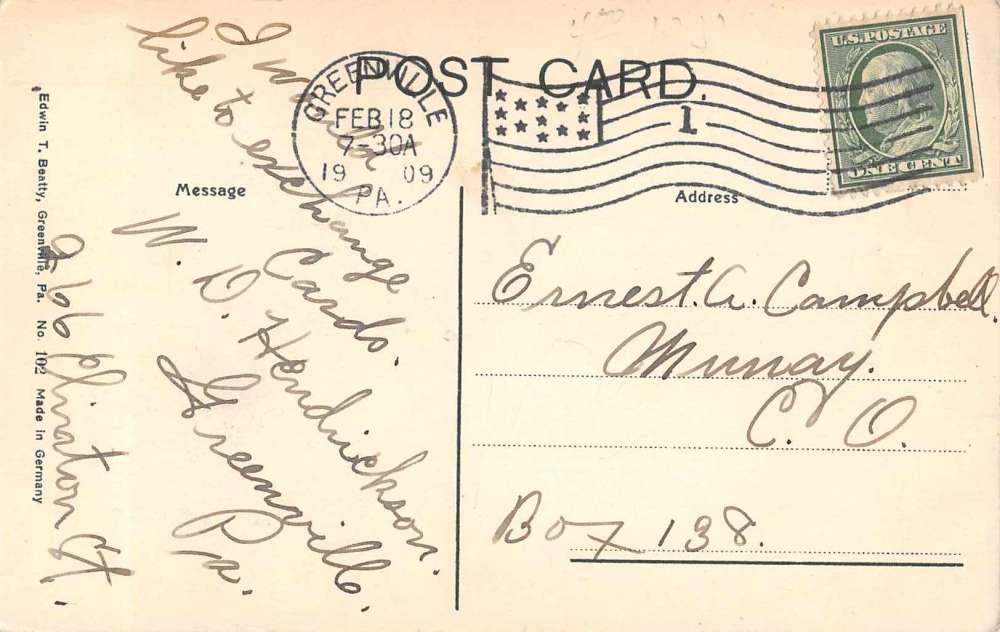 POST CARD.
U.S. POSTAGE
ONE CENT
GREENVILLE
FEB 18
7-30A
19 09
PA.
1
Message
Address
I would
like to exchange
Cards.
W. D. Hendrickson.
Greenville.
Pa.
Ernest. A. Campbell.
Murray.
C. O.
Box 138.
Edwin T. Beatty, Greenville, Pa. No. 102 Made in Germany